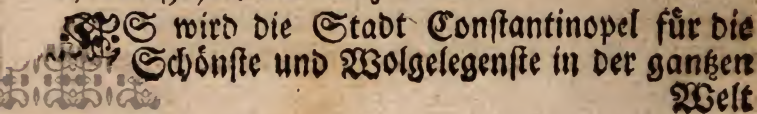 ES wird die Stadt Constantinopel für die
Schönste und Wolgelegenste in der gantzen
Welt